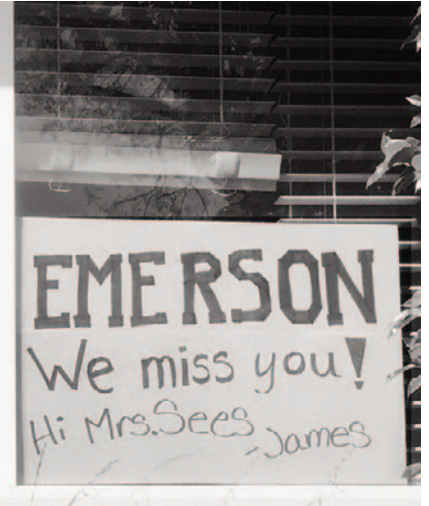 EMERSON
We miss you!
Hi Mrs. Sees
-James